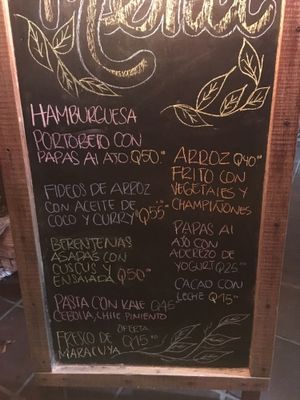 Menu
HAMBURGUESA
PORTOBELO CON
PAPAS AL AJO Q50.00
FIDEOS DE ARROZ
CON ACEITE DE
COCO Y CURRY Q55.00
BERENJENAS
ASADAS CON
CUSCUS Y
ENSALADA Q50.00
PASTA CON KALE Q45
CEBOLLA, CHILE PIMIENTO
OFERTA
FRESCO DE Q15.00
MARACUYA
ARROZ Q40.00
FRITO CON
VEGETALES Y
CHAMPIÑONES
PAPAS AL
AJO CON
ADEREZO DE
YOGURT Q25.00
CACAO CON
LECHE Q15.00